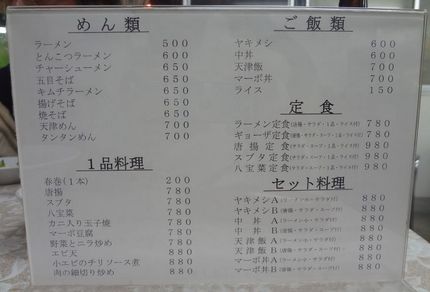 めん類
ラーメン 500
とんこつラーメン 600
チャーシューメン 650
五目そば 650
キムチラーメン 650
揚げそば 650
焼そば 650
天津めん 700
タンタンめん 700
1品料理
春巻(1本) 200
唐揚 780
スブタ 780
八宝菜 780
カニ入り玉子焼 780
マーボ豆腐 780
野菜とニラ炒め 780
エビ天 880
小エビのチリソース煮 880
肉の細切り炒め 880
ご飯類
ヤキメシ 600
中丼 600
天津飯 700
マーボ丼 700
ライス 150
定食
ラーメン定食(唐揚・サラダ・1品・ライス付) 780
ギョーザ定食(唐揚・サラダ・1品・ライス付) 780
唐揚定食(サラダ・スープ・1品・ライス付) 980
スブタ定食(サラダ・スープ・1品・ライス付) 980
八宝菜定食(サラダ・スープ・1品・ライス付) 980
セット料理
ヤキメシA(ラーメン小・サラダ付) 880
ヤキメシB(唐揚・サラダ・スープ付) 880
中丼A(ラーメン小・サラダ付) 880
中丼B(唐揚・サラダ・スープ付) 880
天津飯A(ラーメン小・サラダ付) 880
天津飯B(唐揚・サラダ・スープ付) 880
マーボ丼A(ラーメン小・サラダ付) 880
マーボ丼B(唐揚・サラダ・スープ付) 880